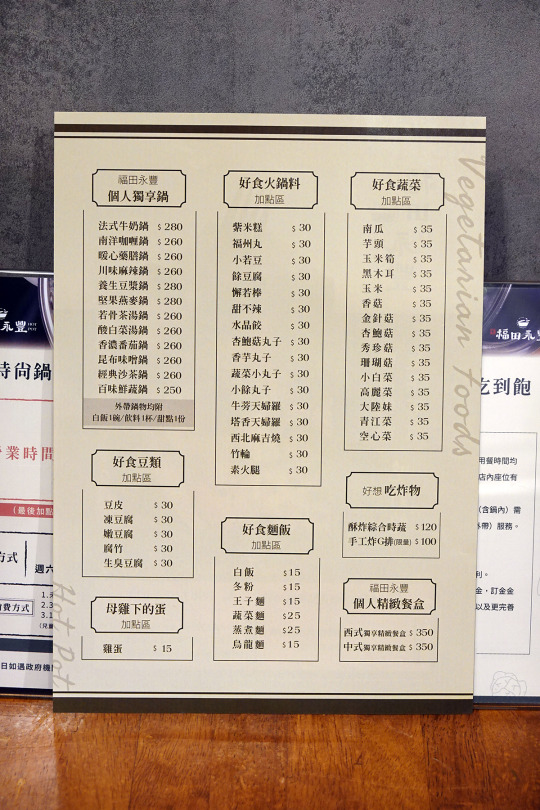 福田永豐
個人獨享鍋
法式牛奶鍋 $ 280
南洋咖喱鍋 $ 260
暖心藥膳鍋 $ 260
川味麻辣鍋 $ 260
養生豆漿鍋 $ 280
堅果燕麥鍋 $ 280
若骨茶湯鍋 $ 260
酸白菜湯鍋 $ 260
香濃番茄鍋 $ 260
昆布味噌鍋 $ 260
經典沙茶鍋 $ 260
百味鮮蔬鍋 $ 250
外帶鍋物均附
白飯1碗/飲料1杯/甜點1份
好食豆類
加點區
豆皮 $ 30
凍豆腐 $ 30
嫩豆腐 $ 30
腐竹 $ 30
生臭豆腐 $ 30
母雞下的蛋
加點區
雞蛋 $ 15
好食火鍋料
加點區
紫米糕 $ 30
福州丸 $ 30
小若豆 $ 30
餘豆腐 $ 30
蟹若棒 $ 30
甜不辣 $ 30
水晶餃 $ 30
杏鮑菇丸子 $ 30
香芋丸子 $ 30
蔬菜小丸子 $ 30
小餘丸子 $ 30
牛蒡天婦羅 $ 30
塔香天婦羅 $ 30
西北麻吉燒 $ 30
竹輪 $ 30
素火腿 $ 30
好食麵飯
加點區
白飯 $15
冬粉 $15
王子麵 $15
蔬菜麵 $25
蒸煮麵 $25
烏龍麵 $15
好食蔬菜
加點區
南瓜 $ 35
芋頭 $ 35
玉米筍 $ 35
黑木耳 $ 35
玉米 $ 35
香菇 $ 35
金針菇 $ 35
杏鮑菇 $ 35
秀珍菇 $ 35
珊瑚菇 $ 35
小白菜 $ 35
高麗菜 $ 35
大陸妹 $ 35
青江菜 $ 35
空心菜 $ 35
好想 吃炸物
酥炸綜合時蔬 $120
手工炸G排(限量) $ 100
福田永豐
個人精緻餐盒
西式獨享精緻餐盒 $ 350
中式獨享精緻餐盒 $ 350
Vegetarian foods
Hot Pot
永豐
時尚鍋
營業時間
(最後加點
方式
週六
費方式
日如遇政府機
福田永豐
吃到飽
用餐時間均
店內座位有
(含鍋內)需
外帶)服務。
利。
金、訂金金
以及更完善